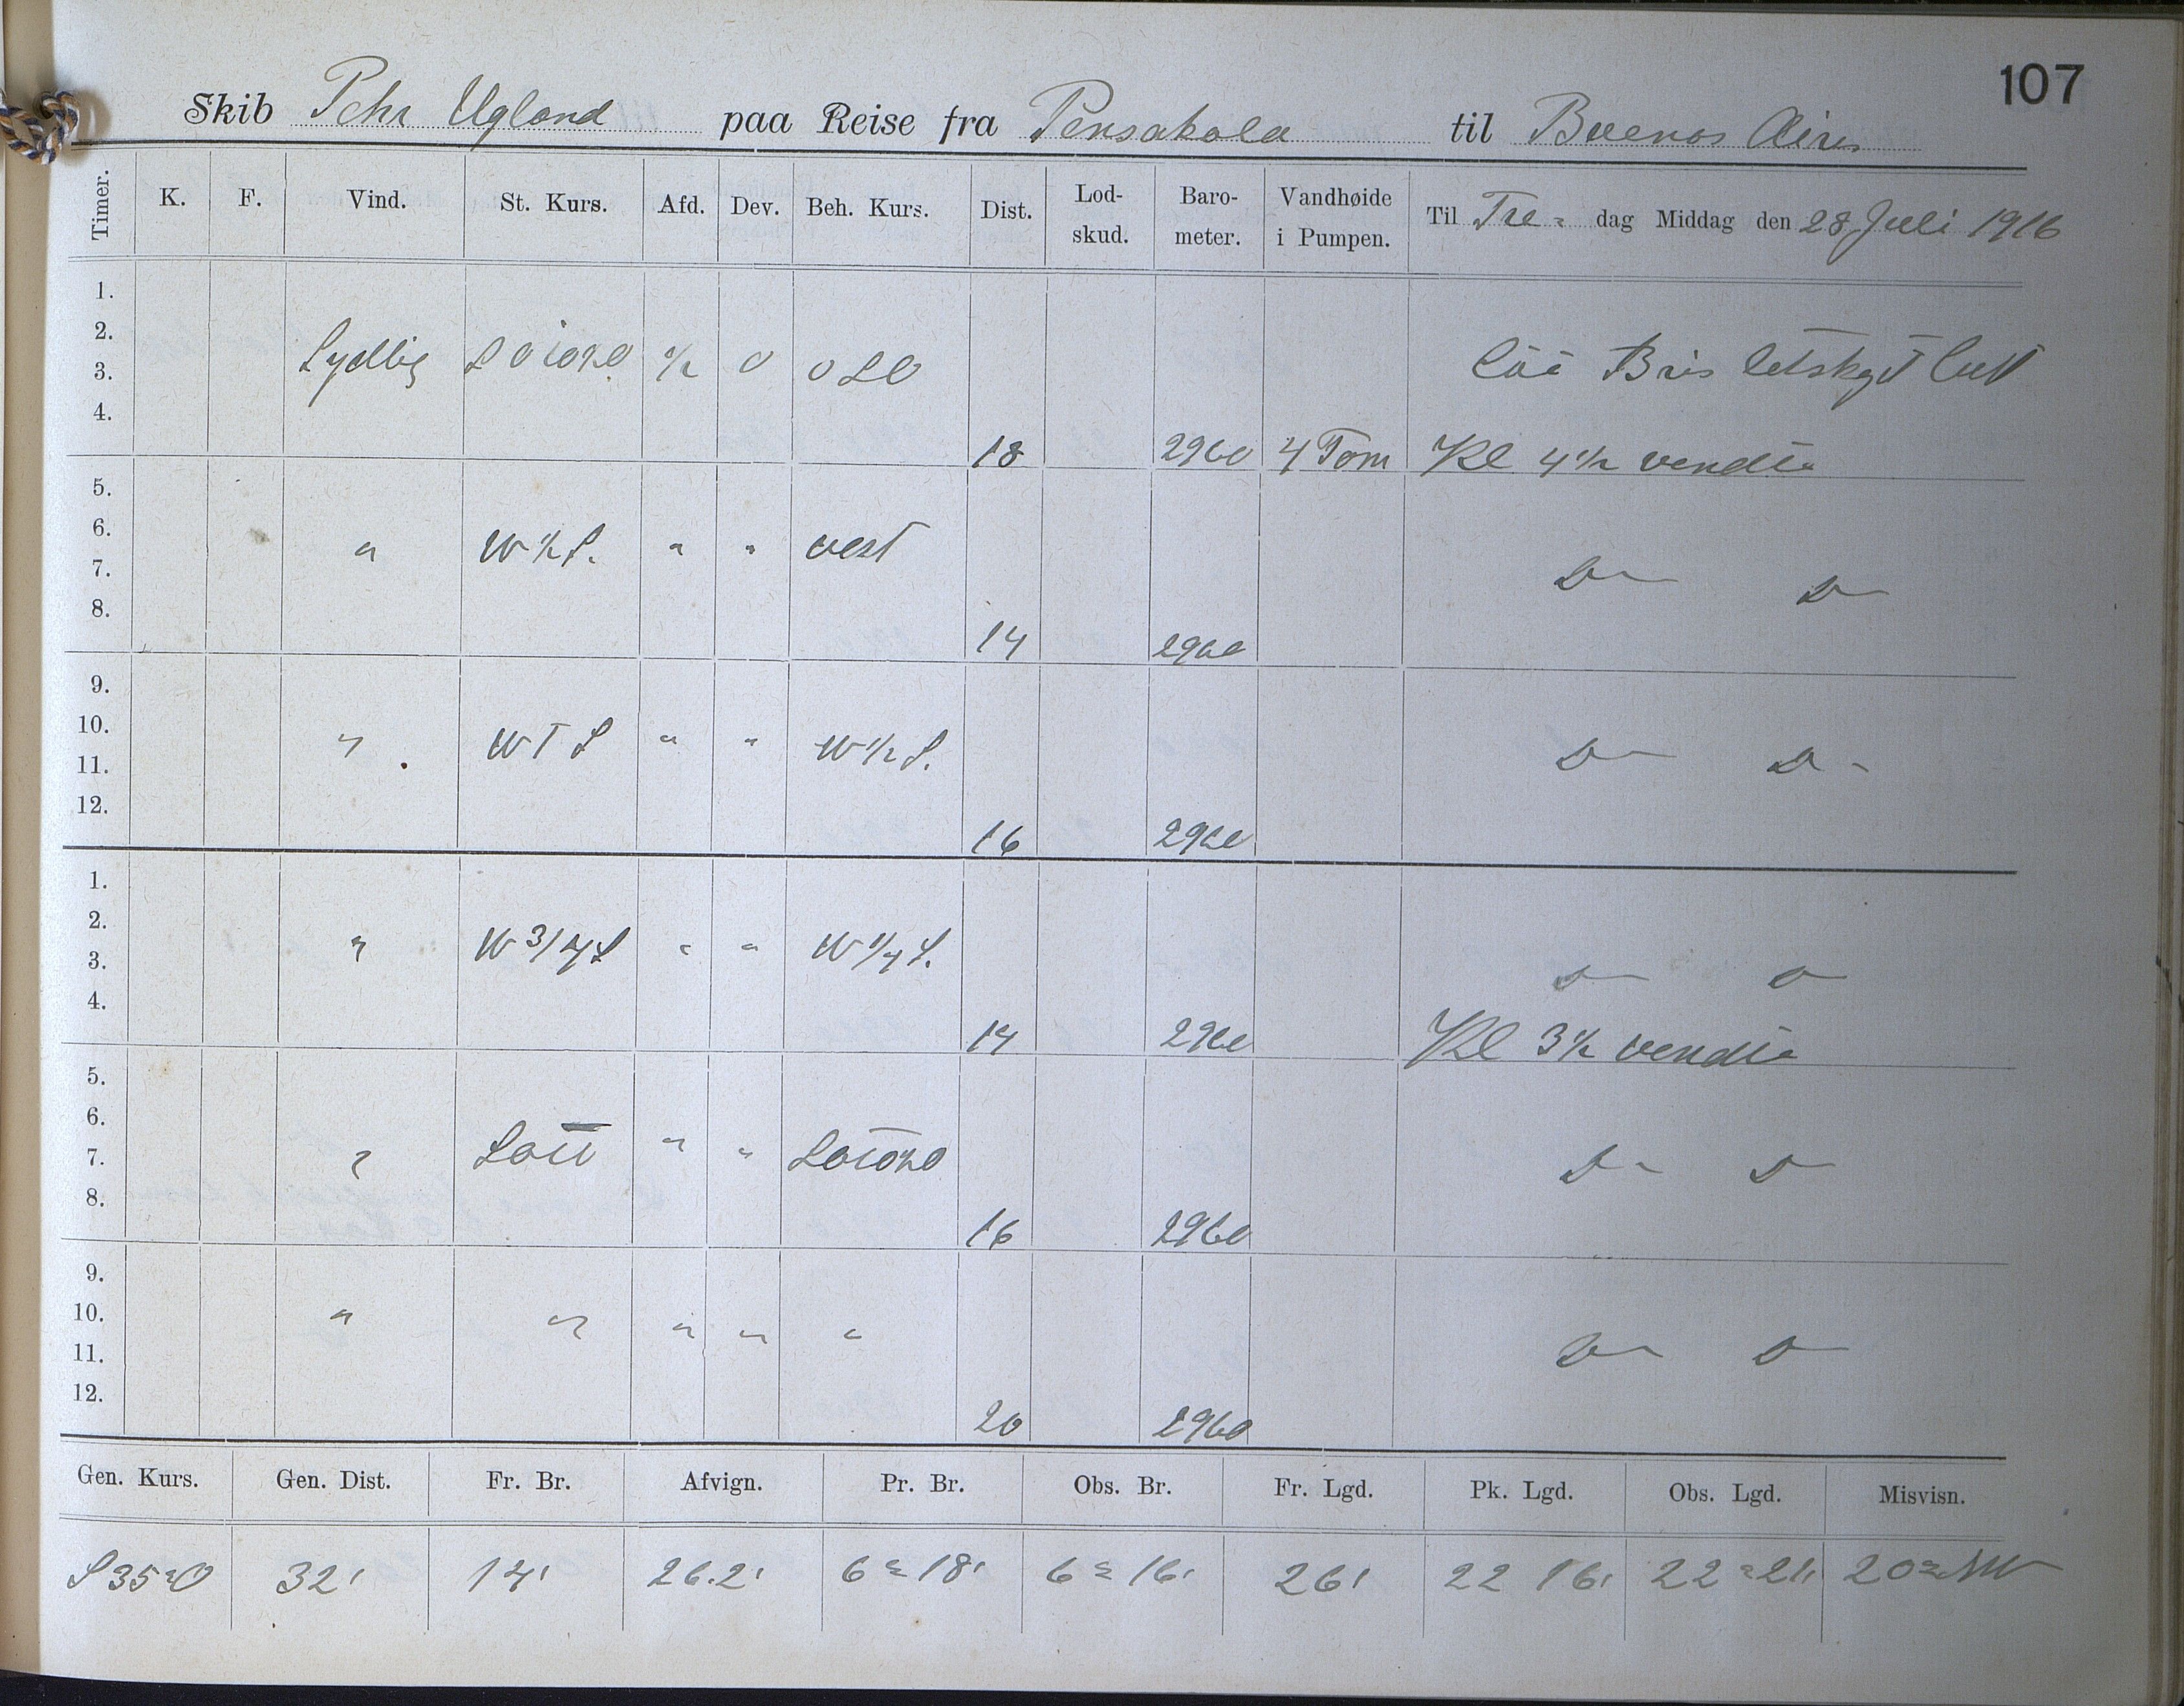 107
Skib Pehr Ugland paa Reise fra Pensakola til Buenos Aires
Timer. K. F. Vind. St. Kurs. Afd. Dev. Beh. Kurs. Dist. Lod-skud. Baro-meter. Vandhøide i Pumpen. Til Fre- dag Middag den 28 Juli 1916
1.
2.
3. Sydlig SOtO½O ½ 0 OSO Bris letskyet luft
4. 18 2960 4 Tom Kl 4½ vendte
5.
6. " W½S. " " vest
7. D— D—
8. 14 2960
9.
10. " WTS " " W½S.
11. D— D-
12. 16 2960
1.
2. " W3/4S " " W1/4S.
3. D— D—
4. 14 2960 Kl 3½ vendte
5.
6.
7. " " " D- D—
8. 16 2960
9.
10. " " " " "
11. D— D—
12. 20 2960
Gen. Kurs. Gen. Dist. Fr. Br. Afvign. Pr. Br. Obs. Br. Fr. Lgd. Pk. Lgd. Obs. Lgd. Misvisn.
S35°O 32' 14' 26.2' 6° 18' 6° 16' 26' 22 16' 22° 21' 20° NW